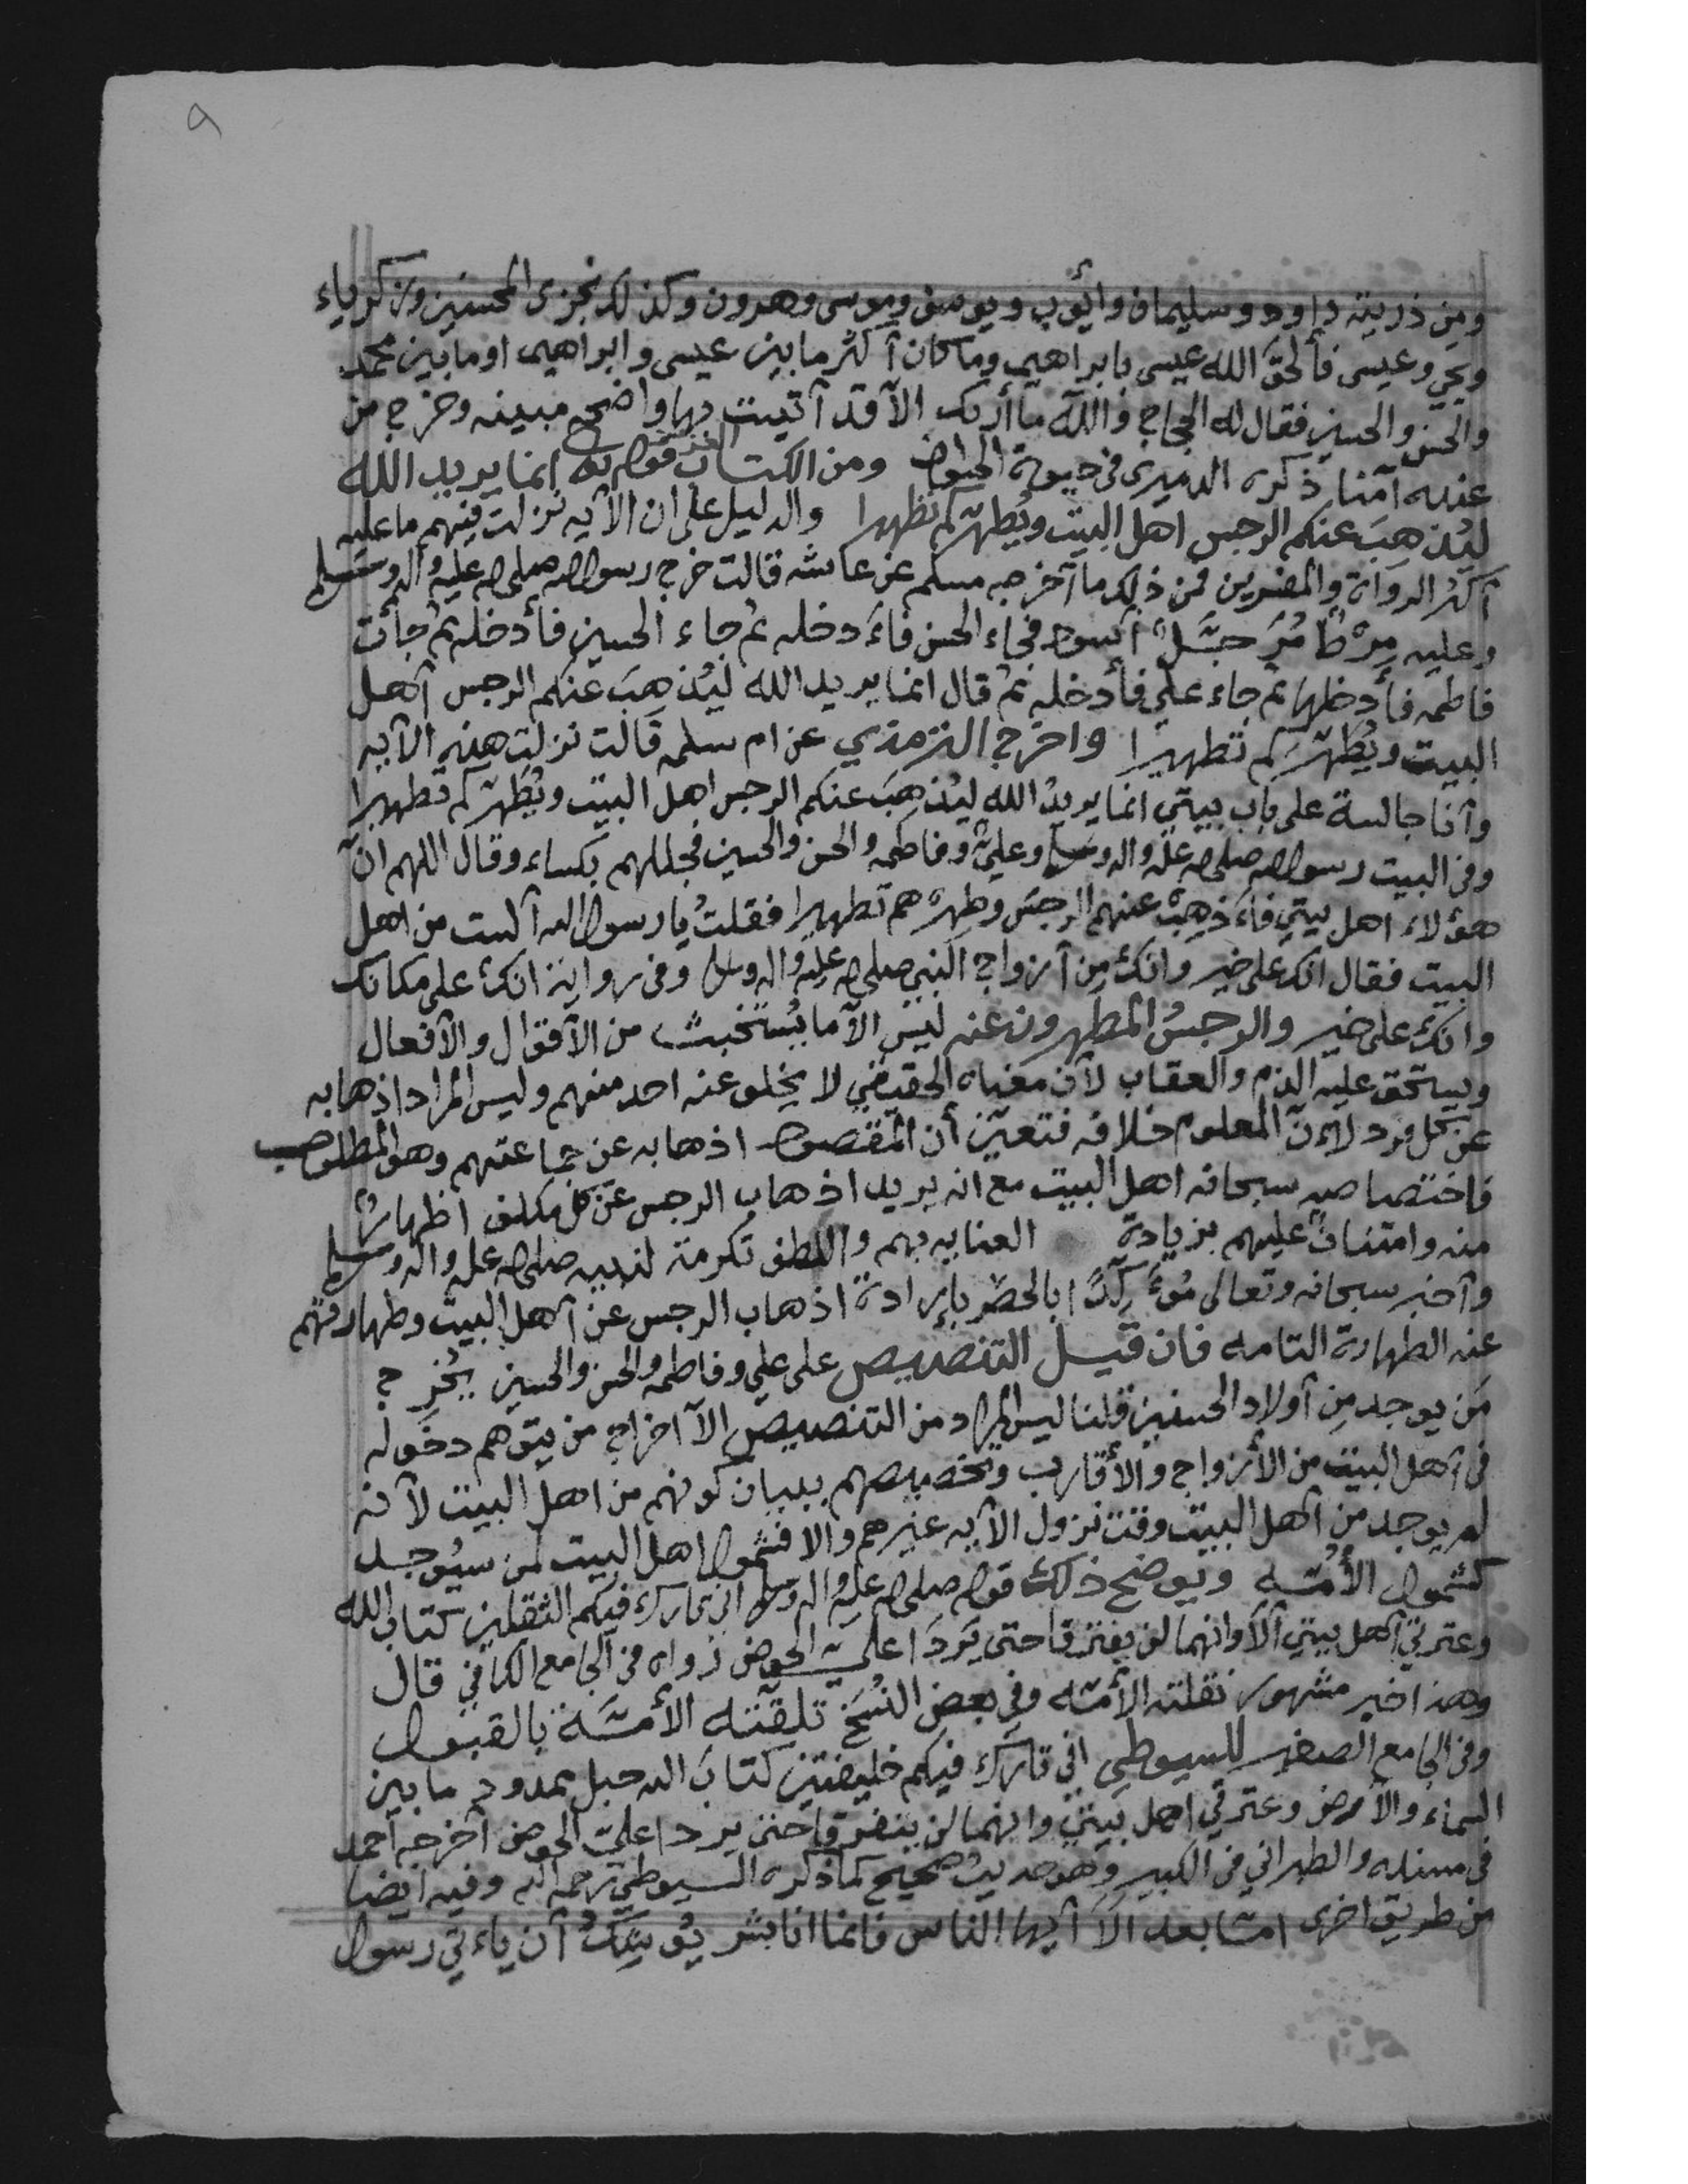 ٩
ومن ذريته داود وسليمان وأيّوب ويوسف وموسى وهرون وكذلك نجزى المحسنين وزكرياء
ويحي وعيسى فألحق الله عيسى بابراهيم وما كان أكثر ما بين عيسى وابراهيم او ما بين محمد
والحسن والحسين فقال له الحجاج والله ما أريك الا قد أتيت بها واضحه مبينه وخرج من
عنده آمنا ذكره الدميرى في حيوة الحيوان ومن الكتاب العزيز قوله تعالى انما يريد الله
ليُذهِبَ عنكم الرجس اهل البيت ويُطهّركم تطهيرا والدليل على ان الآيه نزلت فيهم ما عليه
أكثر الرواة والمفسرين فمن ذلك ما أخرجه مسلم عن عائشه قالت خرج رسول الله صلى الله عليه وآله وسلم
وعليه مِرْطٌ مُرَحَّلٌ أسود فجاء الحسن فأدخله ثم جاء الحسين فأدخله ثم جأت
فاطمه فأدخلها ثم جاء علي فأدخله ثم قال انما يريد الله ليُذهِبَ عنكم الرجس أهل
البيت ويُطَهّرَكم تطهيرا واخرج الترمذي عن ام سلمه قالت نزلت هذه الآيه
وأنا جالسة على باب بيتي انما يريدُ الله ليُذهِبَ عنكم الرجس اهل البيت ويُطَهّركم تطهيرا
وفى البيت رسول الله صلى الله عليه واله وسلم وعليٌّ وفاطمه والحسن والحسين فجللهم بكساء وقال اللهم انّ
هؤلاء اهل بيتي فأذهِبْ عنهم الرجسَ وطهرهم تطهيرا فقلتُ يا رسول الله ألست من اهل
البيت فقال انك على خير وانكِ مِن أزواج النبي صلى الله عليه واله وسلم وفى رواية انكِ على مكانك
وانكِ على خير والرجسُ المطهرون عنه ليس الا ما يُستخبث من الأقوال والأفعال
ويستحق عليه الذم والعقاب لأن معناه الحقيقي لا يخلو عنه احد منهم وليس المراد اذهابه
عن كل فرد لأنّ المعلوم خلافه فتعيّن أن المقصود اذهابه عن جماعتهم وهو المطلوب
فاختصاصه سبحانه اهل البيت مع انه يريد اذهاب الرجس عن كل مكلف اظهاراً
منه وامتناناً عليهم بزيادة العنايه بهم واللطف تكرمة لنبيه صلى الله عليه واله وسلم
وأخبر سبحانه وتعالى مُؤكِّدًا بالحصر بإرادة اذهاب الرجس عن أهل البيت وطهارتهم
عنه الطهارة التامه فان قيل التنصيص على علي وفاطمه والحسن والحسين يُخرِج
مَن يوجد مِن أولاد الحسنين قلنا ليس المراد من التنصيص الا اخراج من يتوهم دخوله
فى أهل البيت من الأزواج والأقارب وتخصيصهم ببيان كونهم من اهل البيت لأنه
لم يوجد من أهل البيت وقت نزول الآيه غيرهم والا فشمول اهل البيت لمن سيُوجد
كشمول الأمّه ويوضح ذلك قوله صلى الله عليه واله وسلم انى تارك فيكم الثقلين كتاب الله
وعترتي أهل بيتي ألا وانهما لن يفترقا حتى يَردَا عليّ الحوض رواه فى الجامع الكافي قال
وهذا خبر مشهور نقلته الأمّه وفى بعض النُسَخ تلقّته الأمّة بالقبول
وفى الجامع الصغير للسيوطي اني تارك فيكم خليفتين كتابَ الله حبل ممدود ما بين
السماء والأرض وعترتي اهل بيتي وانهما لن يتفرقا حتى يردا عليّ الحوض أخرجه أحمد
في مسنده والطبراني فى الكبير وهو حديث صحيح كما ذكره السيوطي رحمه الله وفيه ايضا
من طريق اخرى امّا بعد ألا أيها الناس فانما انا بشر يُوشِكُ أن يأتي رسول